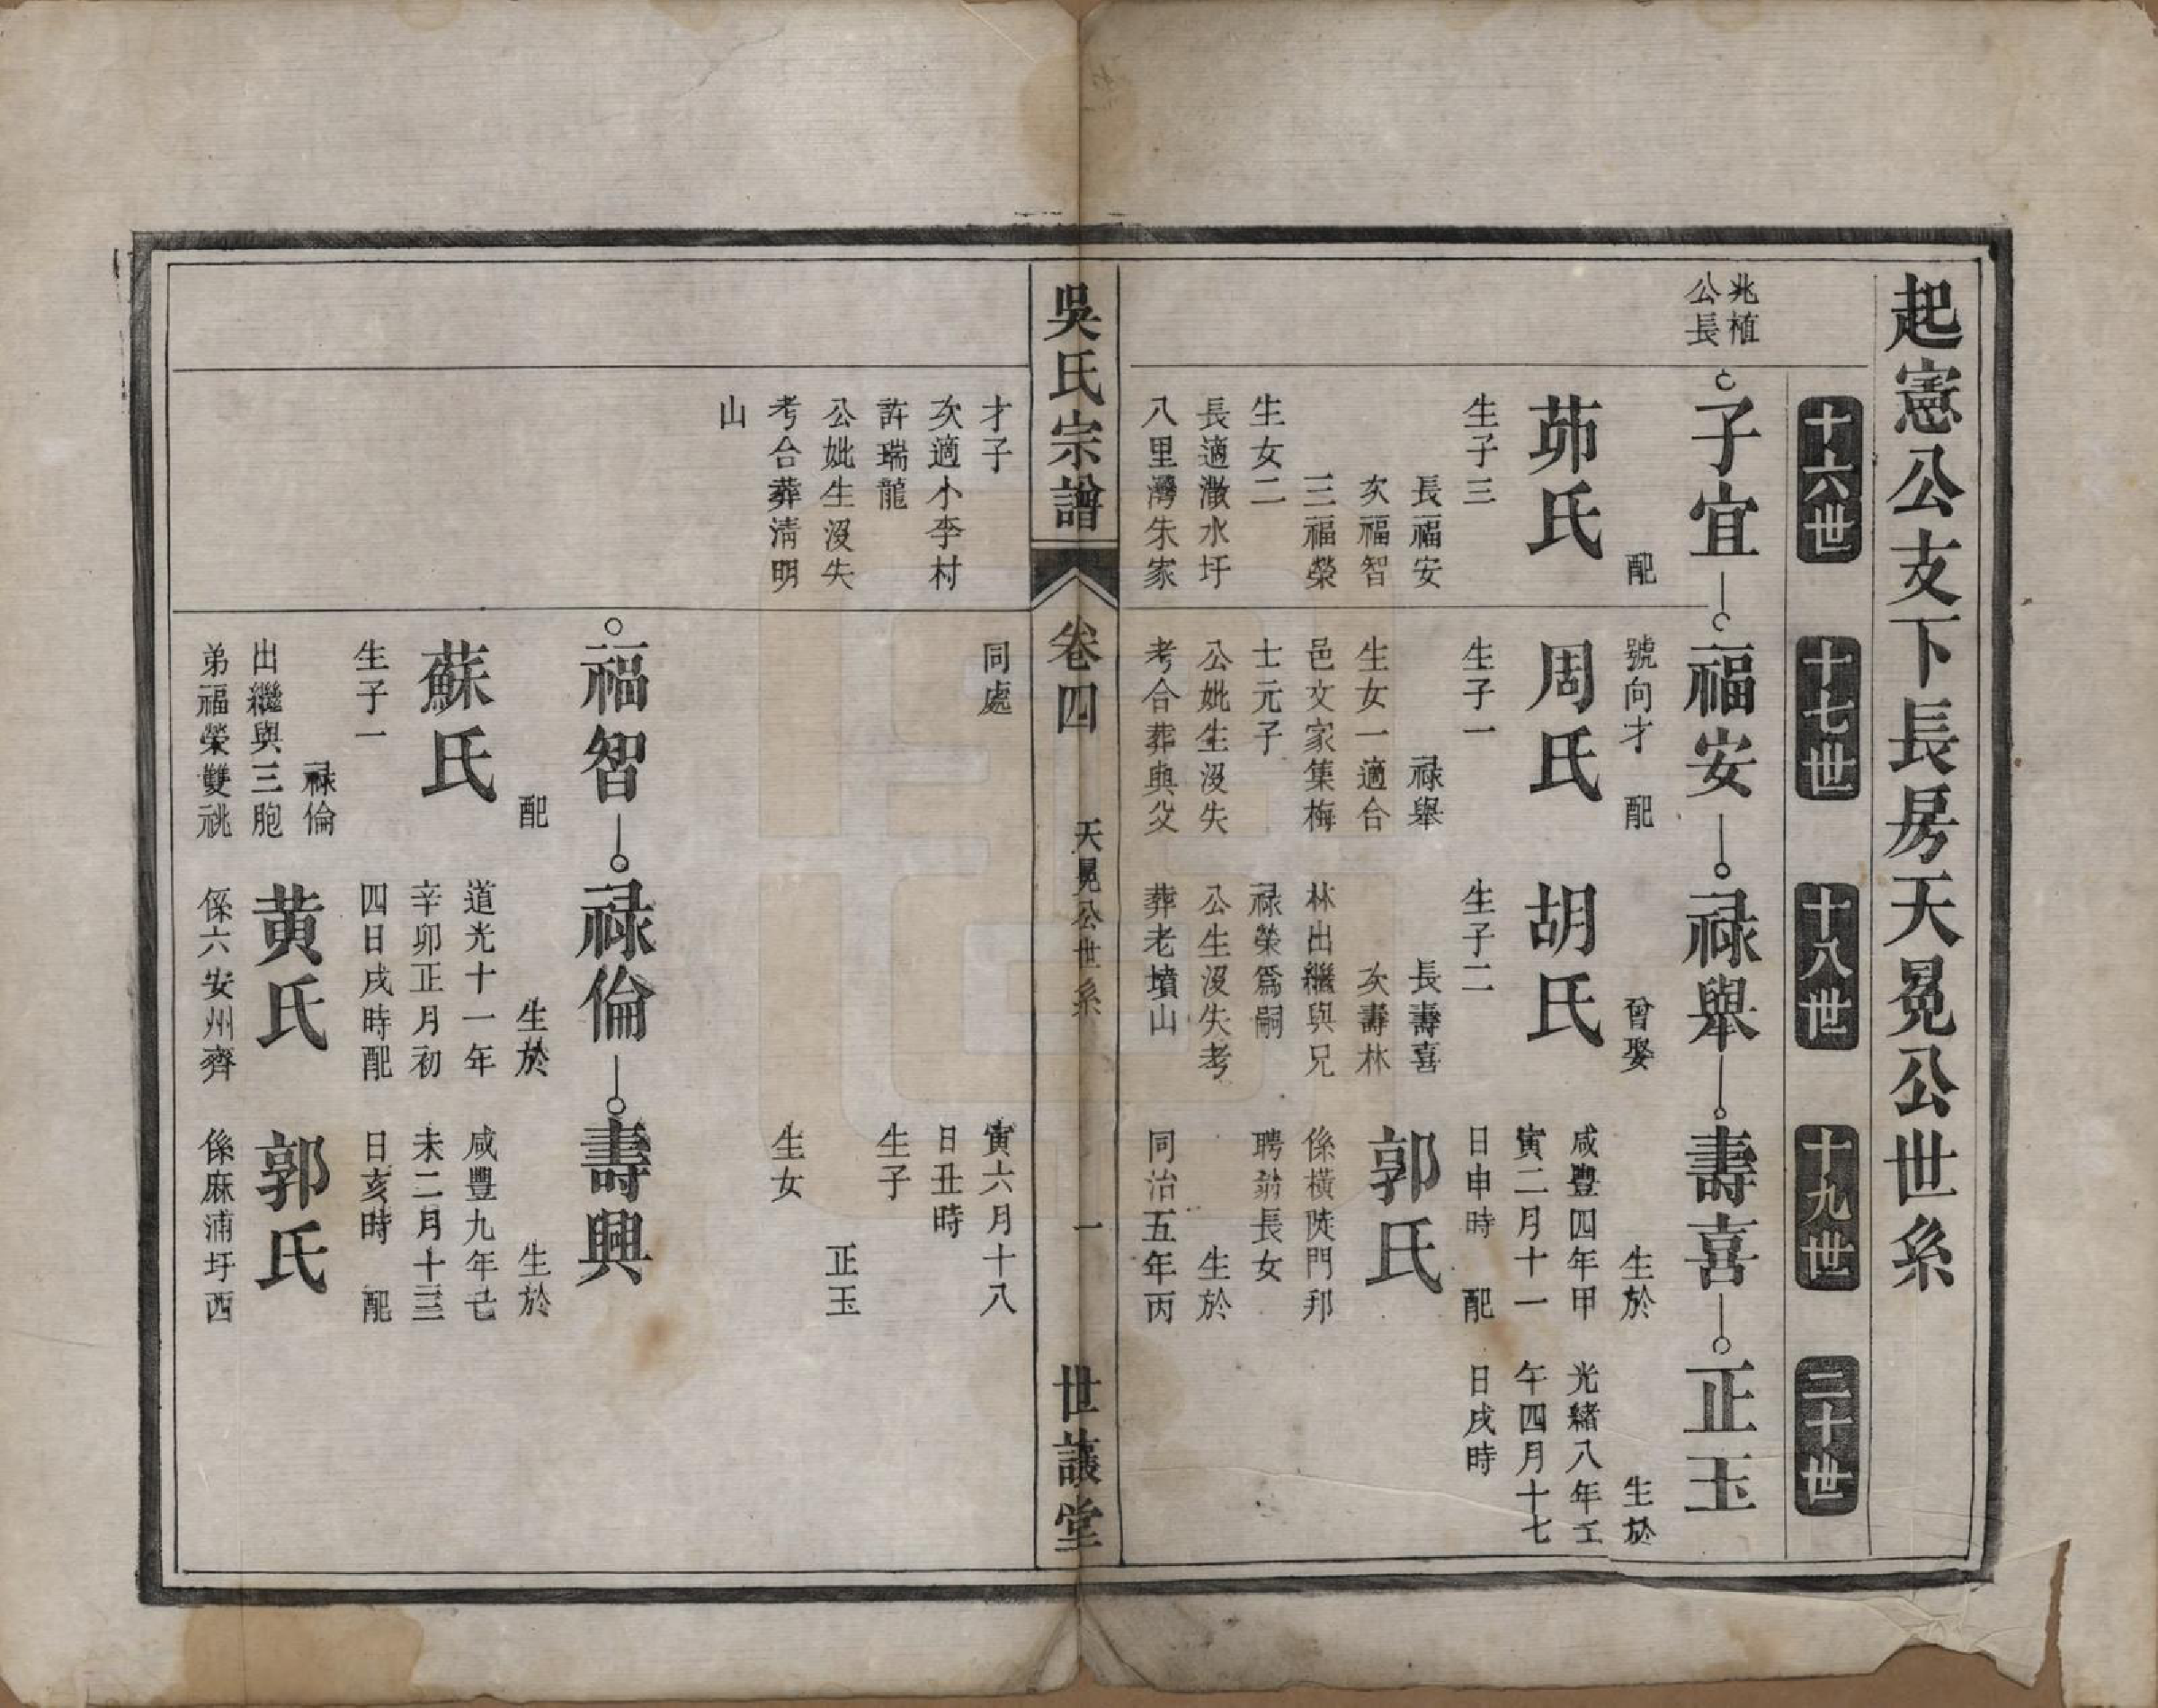 起憲公支下長房天冕公世系
十六世
十七世
十八世
十九世
二十世
兆植
公長
子宜
配
茆氏
生子三
長福安
次福智
三福榮
生女二
長適潡水圩
八里灣朱家
才子
次適小李村
許瑞龍
公妣生沒失
考合葬淸明
山
福安
號向才 配
周氏
生子一
祿舉
生女一適合
邑文家集梅
士元子
公妣生沒失
考合葬與父
同處
祿舉
曾娶
胡氏
生子二
長壽喜
次壽林
林出繼與兄
祿榮爲嗣
公生沒失考
葬老墳山
壽喜
生於
咸豐四年甲
寅二月十一
日申時 配
郭氏
係橫陡門邦
聘翁長女
生於
同治五年丙
寅六月十八
日丑時
生子
正玉
生女
正玉
生於
光緒八年壬
午四月十七
日戌時
吳氏宗譜
卷四
天冕公世系
一
世讓堂
福智
配
蘇氏
生子一
祿倫
出繼與三胞
弟福榮雙祧
祿倫
生於
道光十一年
辛卯正月初
四日戌時配
黃氏
係六安州齊
壽興
生於
咸豐九年己
未二月十三
日亥時 配
郭氏
係麻浦圩西